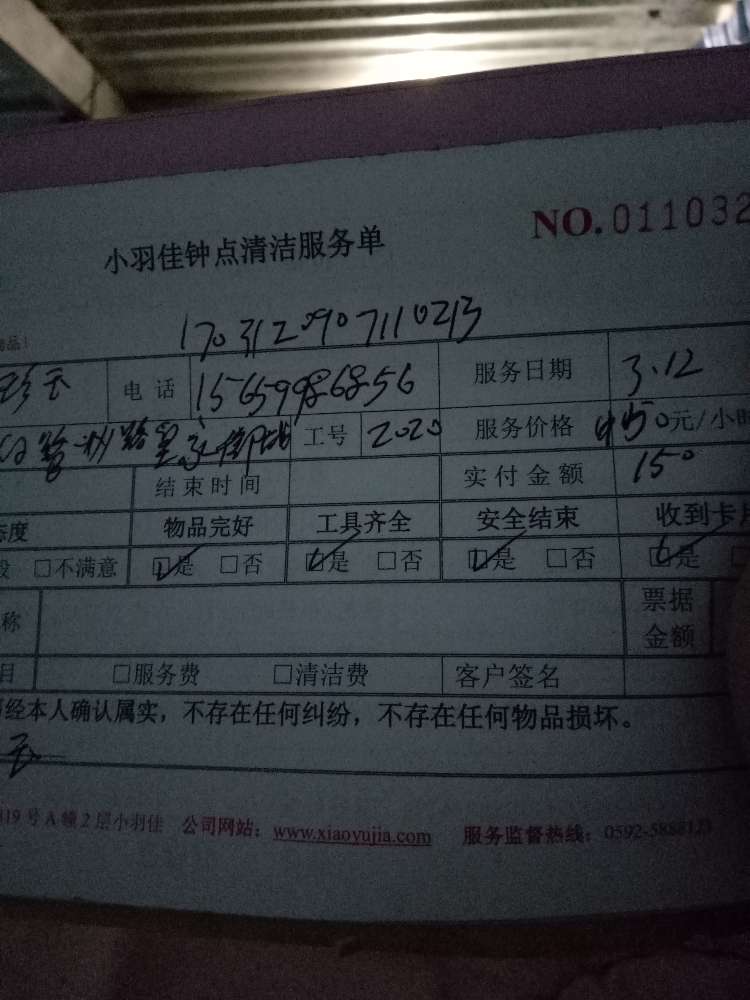 NO. 011032
小羽佳钟点清洁服务单
1703120907110213
电话 15659986856 服务日期 3.12
工号 2020 服务价格 50元/小时
结束时间 实付金额 150
态度 物品完好 工具齐全 安全结束 收到卡
□不满意 □是 □否 □是 □否 □是 □否 □是
称 票据金额
目 □服务费 □清洁费 客户签名
经本人确认属实，不存在任何纠纷，不存在任何物品损坏。
玉
19号A幢2层小羽佳 公司网站：www.xiaoyujia.com 服务监督热线：0592-5888123